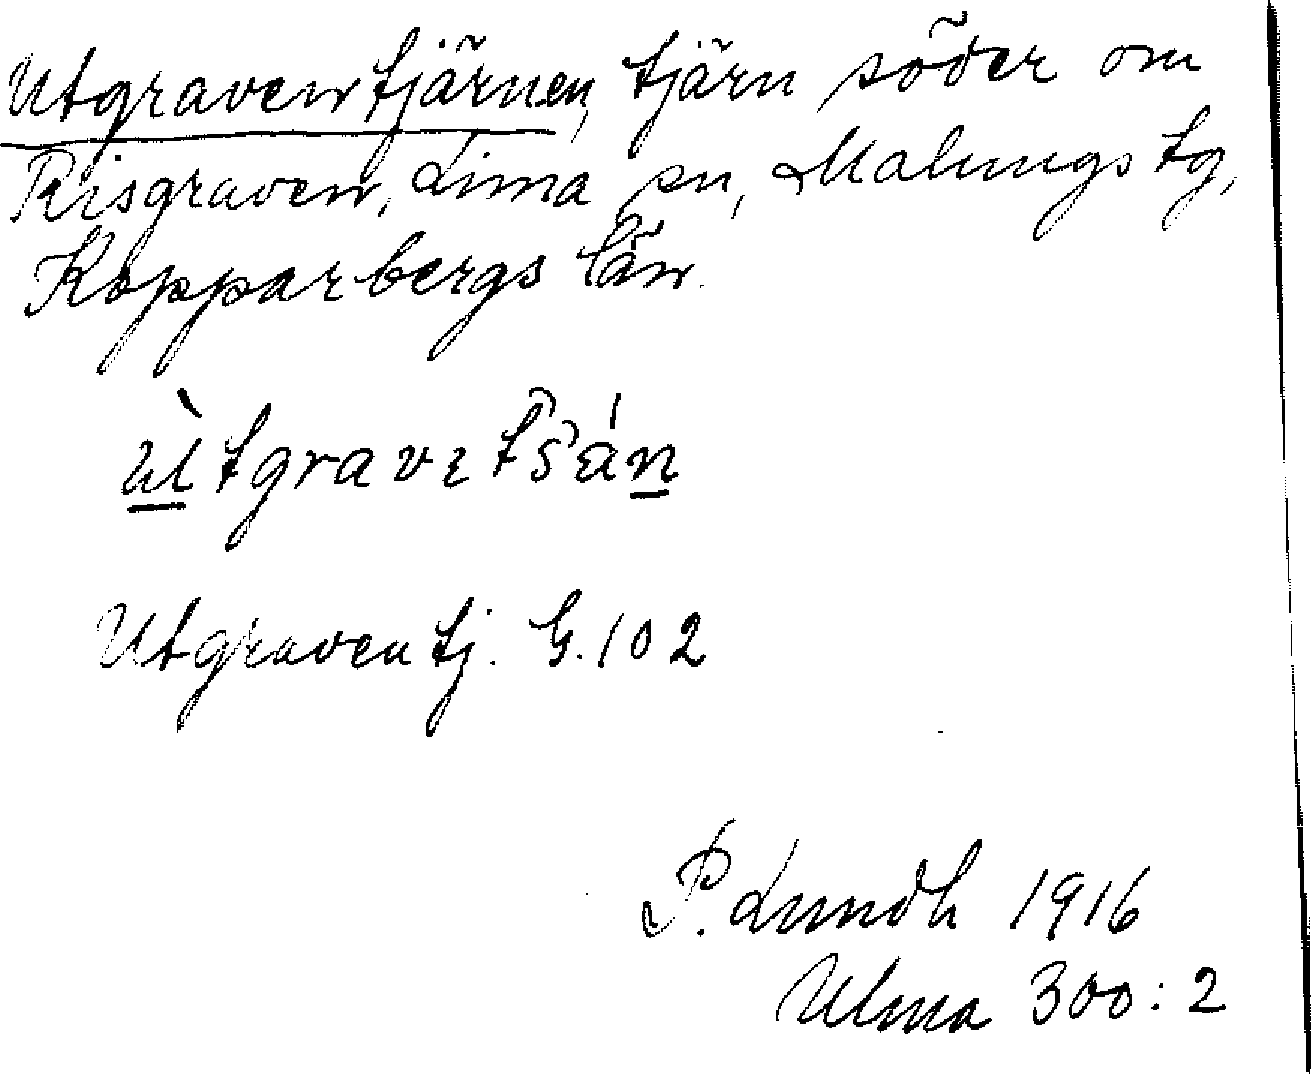 Utgraventjärnen, tjärn söder om
Risgraven, Lima sn, Malungs tg,
Kopparbergs län.
ùtgravɪtšán
Utgraven tj. G. 102
P. Lundh 1916
Ulma 300:2